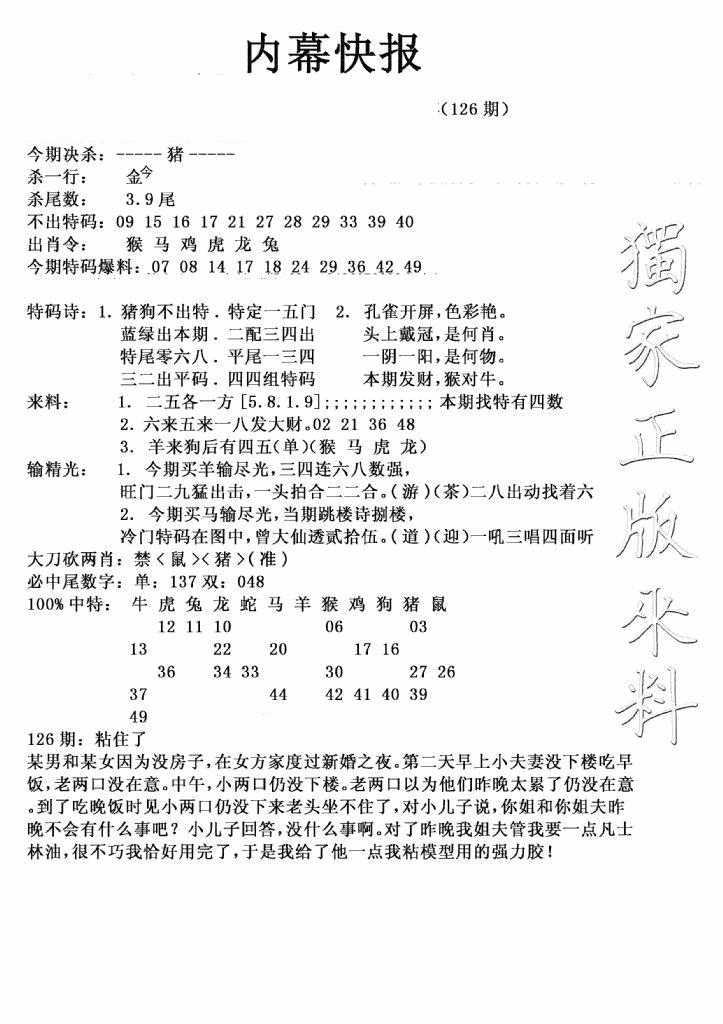 内幕快报
(126期)
今期决杀: ----- 猪 -----
杀一行: 金今
杀尾数: 3.9尾
不出特码: 09 15 16 17 21 27 28 29 33 39 40
出肖令: 猴 马 鸡 虎 龙 兔
今期特码爆料: 07 08 14 17 18 24 29 36 42 49
特码诗: 1. 猪狗不出特 . 特定一五门 2. 孔雀开屏,色彩艳。
蓝绿出本期 . 二配三四出 头上戴冠,是何肖。
特尾零六八 . 平尾一三四 一阴一阳,是何物。
三二出平码 . 四四组特码 本期发财,猴对牛。
来料: 1. 二五各一方[5.8.1.9];;;;;;;;;;;; 本期找特有四数
2. 六来五来一八发大财。02 21 36 48
3. 羊来狗后有四五(单)(猴 马 虎 龙)
输精光: 1. 今期买羊输尽光,三四连六八数强,
旺门二九猛出击,一头拍合二二合。(游)(茶)二八出动找着六
2. 今期买马输尽光,当期跳楼诗捌楼,
冷门特码在图中,曾大仙透贰拾伍。(道)(迎)一吼三唱四面听
大刀砍两肖: 禁<鼠><猪>(准)
必中尾数字: 单: 137 双: 048
100%中特: 牛 虎 兔 龙 蛇 马 羊 猴 鸡 狗 猪 鼠
12 11 10 06 03
13 22 20 17 16
36 34 33 30 27 26
37 44 42 41 40 39
49
126期: 粘住了
某男和某女因为没房子,在女方家度过新婚之夜。第二天早上小夫妻没下楼吃早
饭,老两口没在意。中午,小两口仍没下楼。老两口以为他们昨晚太累了仍没在意
。到了吃晚饭时见小两口仍没下来老头坐不住了,对小儿子说,你姐和你姐夫昨
晚不会有什么事吧? 小儿子回答,没什么事啊。对了昨晚我姐夫管我要一点凡士
林油,很不巧我恰好用完了,于是我给了他一点我粘模型用的强力胶!
獨家正版來料